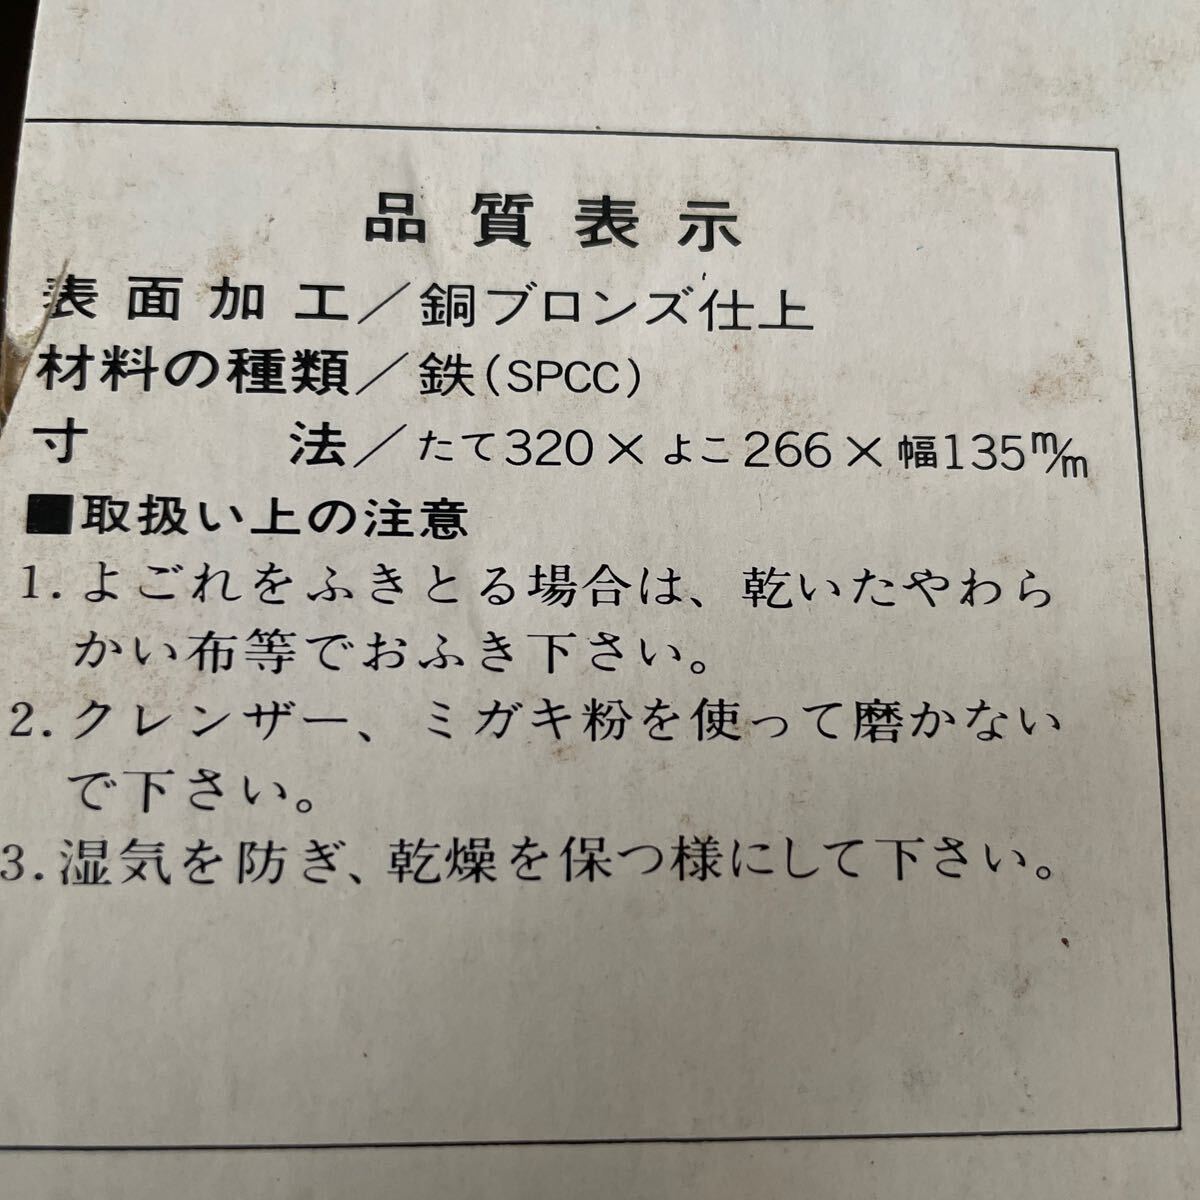 品質表示
表面加工／銅ブロンズ仕上
材料の種類／鉄(SPCC)
寸法／たて320×よこ266×幅135m/m
■取扱い上の注意
1.よごれをふきとる場合は、乾いたやわら
かい布等でおふき下さい。
2.クレンザー、ミガキ粉を使って磨かない
で下さい。
3.湿気を防ぎ、乾燥を保つ様にして下さい。